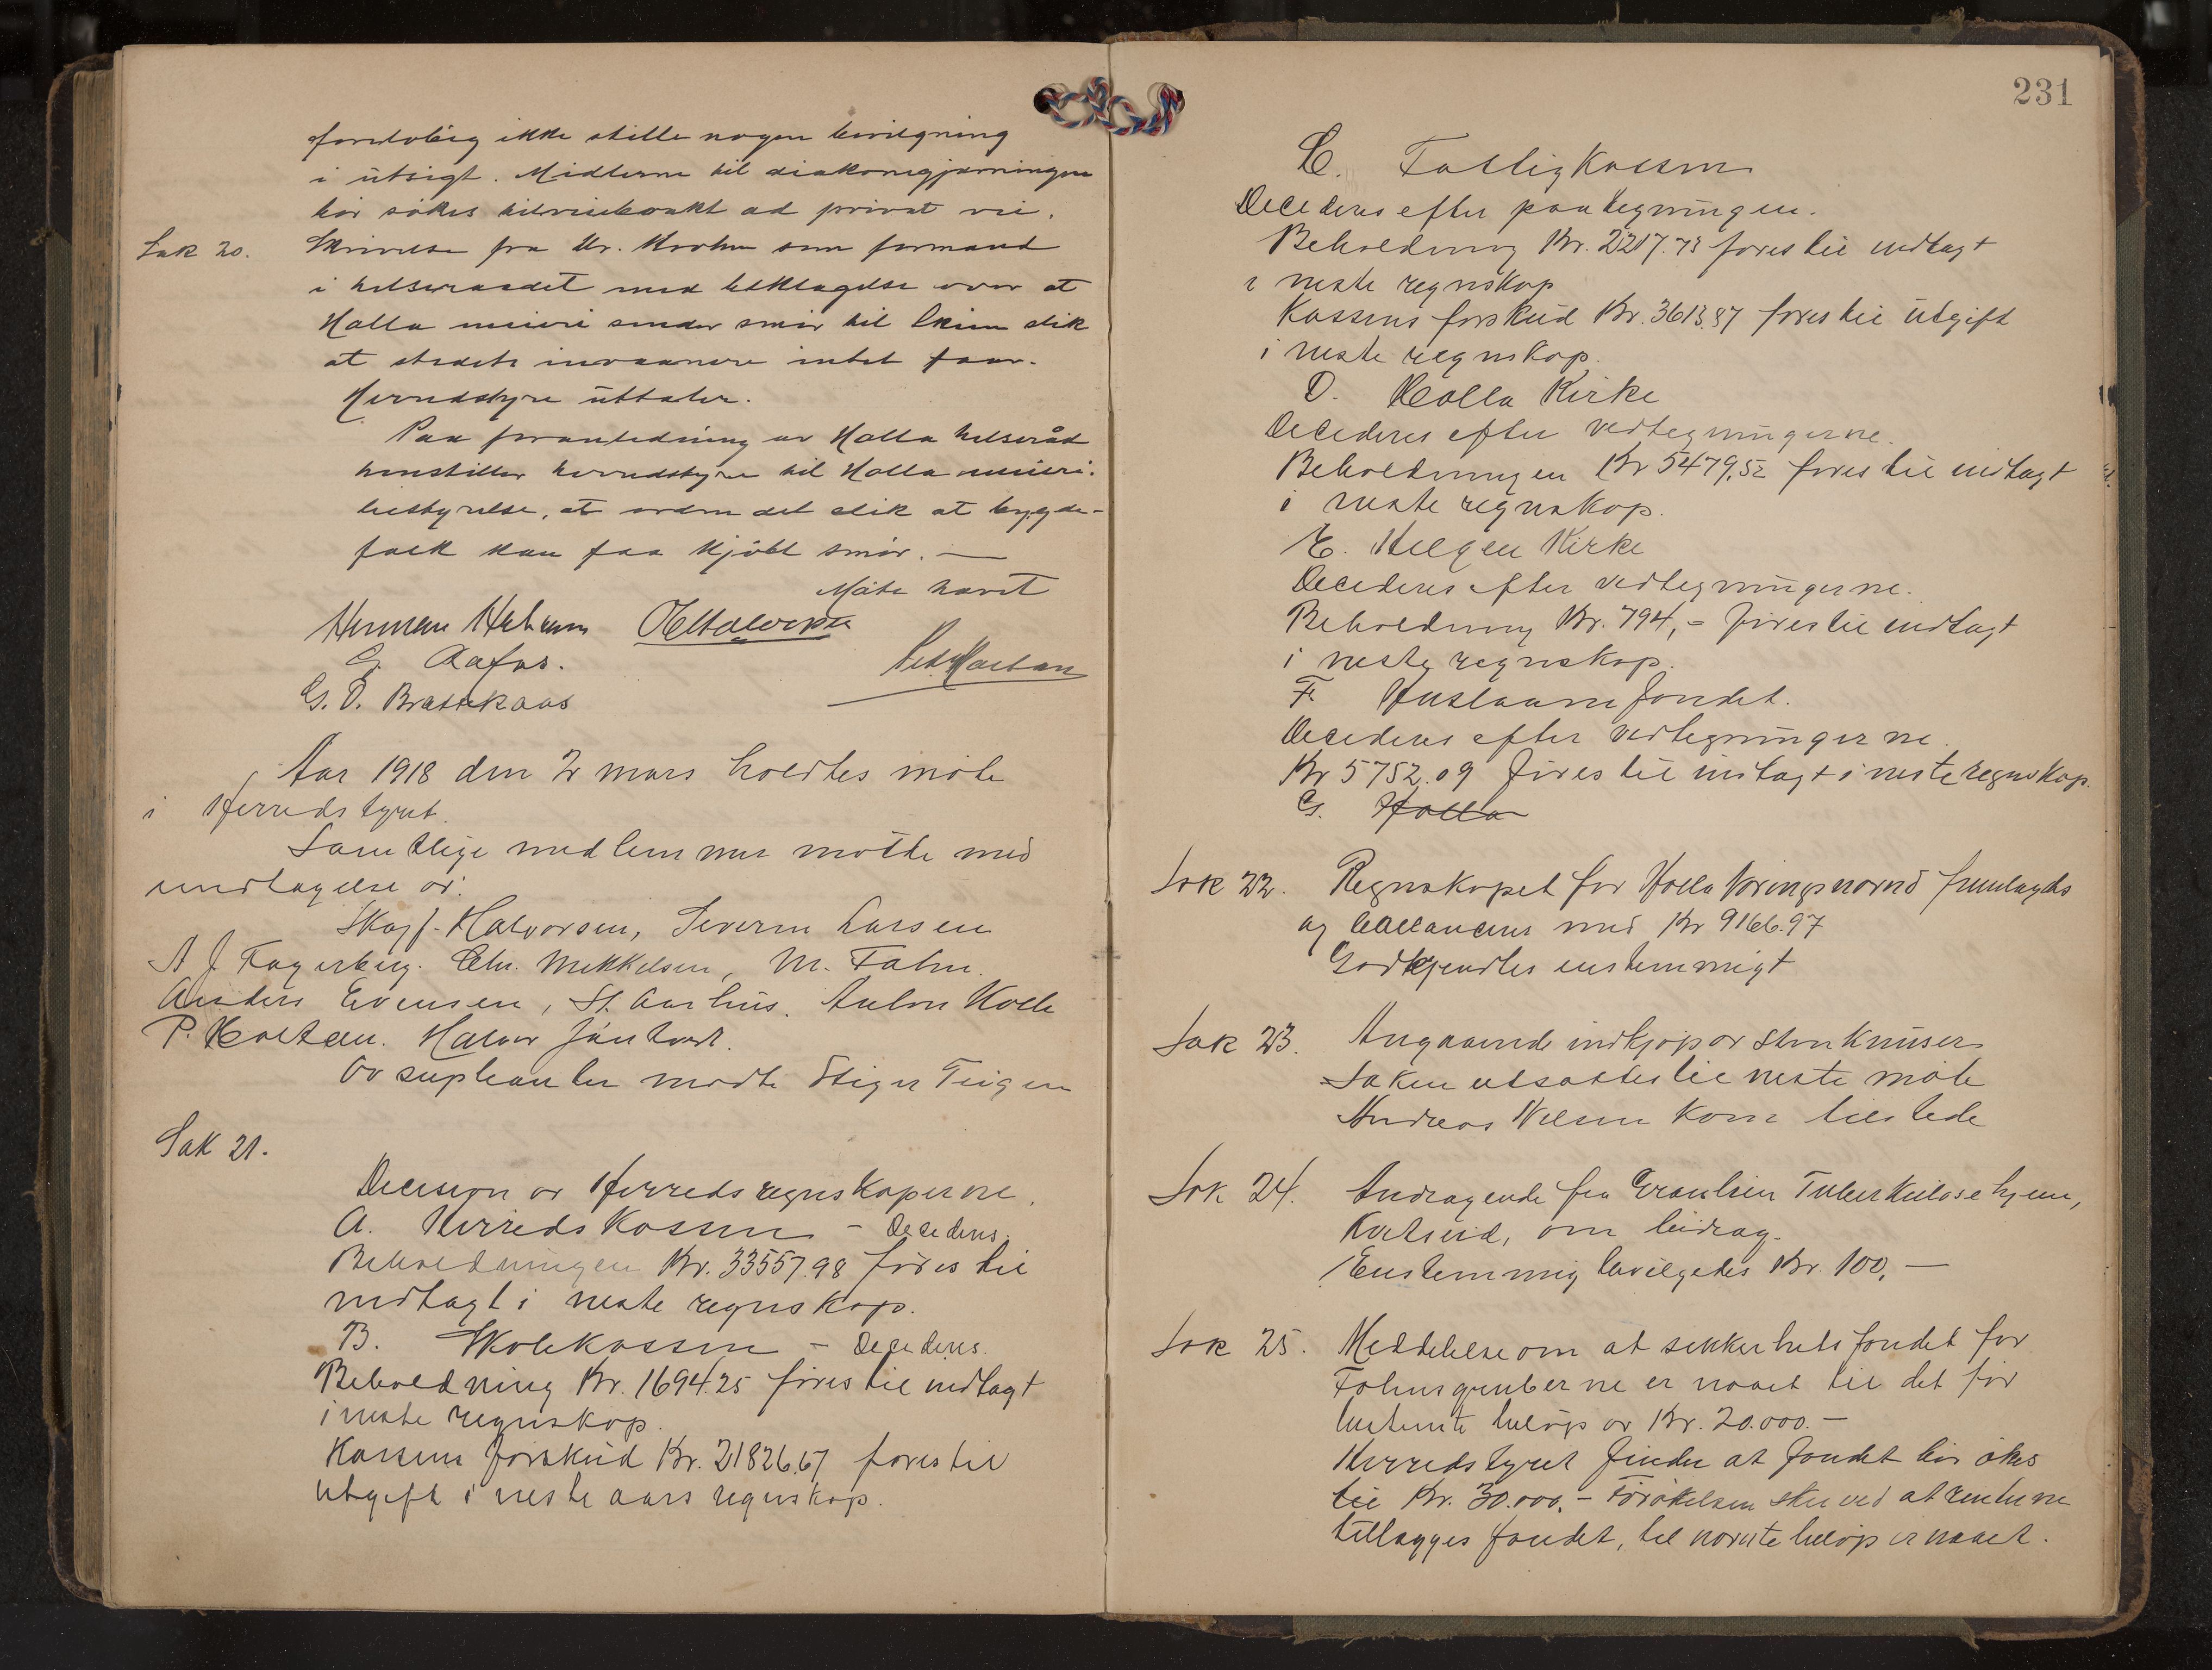 foreløbig ikke stille nogen bevilgning
i utsigt. Midlerne til diakonigjerningen
bør søkes tilveiebrakt ad privat vei.
Sak 20. Skrivelse fra Dr. Krohn som formand
i helseraadet med beklagelse over at
Holla meieri sender smør til Skien slik
at stedets invaanere intet faar.
Herredstyre uttaler.
Paa foranledning av Holla helseråd
henstiller herredstyre til Holla meieri-
bestyrelse, at ordne det slik at bygde-
folk kan faa kjøbt smør. —
Møte hævet
Herman
G. Aafos.
G. O. Brattekaas
Aar 1918 den 2 mars holdtes møte
i Herredstyret.
Samtlige medlemmer møtte med
undtagelse av:
Skogf. Halvorsen, Severin Larsen
A J. Fagerberg. Chr. Mikkelsen, M. Fahn.
Anders Evensen, St. Aarhus. Anton
P. Holtan. Halvor
Av supleanter møtte Stiger Teigen
Sak 21.
Decision av Herredsregnskaperne.
A. Herredskassen – Decederes.
Beholdningen Kr. 33557.98 føres til
indtægt i neste regnskap.
B. Skolekassen – Decederes.
Beholdning Kr. 1694.25 føres til indtægt
i neste regnskap.
Kassens forskud Kr. 21826.67 føres til
utgift i neste aars regnskap.
231
C. Fattigkassen
Decederes efter paategningen.
Beholdning Kr. 2217.73 føres til indtægt
i neste regnskap
Kassens forskud Kr. 3613.87 føres til utgift
i neste regnskap.
D. Holla Kirke
Decederes efter vedtegningerne.
Beholdningen Kr 5479,52 føres til indtægt
i neste regnskap.
E. Helgen Kirke
Decederes efter vedtegningerne.
Beholdning Kr. 794,- føres til indtægt
i neste regnskap.
F. Huslaanefondet.
Decederes efter vedtegningerne.
Kr 5752.09 føres til indtægt i neste regnskap.
G. Holla
Sak 22. Regnskapet for Holla Veringsnævnd fremlagdes
og ballancerer med Kr 9166.97
Godkjendtes enstemmigt
Sak 23. Angaaende indkjøp av stenknuser
Saken utsattes til neste møte
Andreas Nilsen kom tilstede
Sak 24. Andragende fra Granlien Tuberkulosehjem,
om bidrag.
Enstemmig bevilgedes Kr. 100,—
Sak 25. Meddelelse om at sikkerhetsfondet for
Fehnsgruberne er naaet til det før
bestemte beløp av Kr. 20.000.—
Herredstyret finder at fondet bør økes
til Kr. 30.000.- Forøkelsen sker ved at renterne
tillægges fondet, til nævnte beløp er naaet.